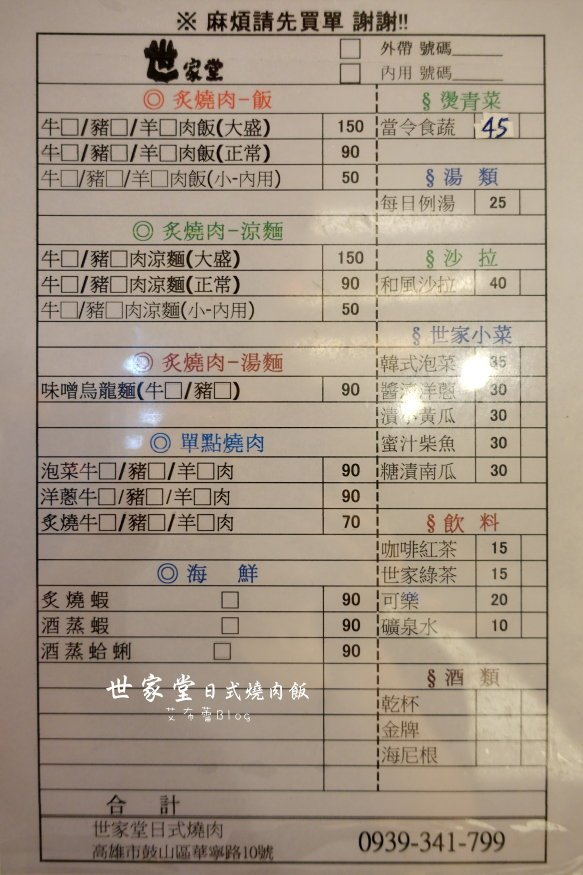 ※ 麻煩請先買單 謝謝!!
世家堂
□ 外帶 號碼______
□ 內用 號碼______
◎ 炙燒肉-飯
牛□/豬□/羊□肉飯(大盛) 150
牛□/豬□/羊□肉飯(正常) 90
牛□/豬□/羊□肉飯(小-內用) 50
◎ 炙燒肉-涼麵
牛□/豬□肉涼麵(大盛) 150
牛□/豬□肉涼麵(正常) 90
牛□/豬□肉涼麵(小-內用) 50
◎ 炙燒肉-湯麵
味噌烏龍麵(牛□/豬□) 90
◎ 單點燒肉
泡菜牛□/豬□/羊□肉 90
洋蔥牛□/豬□/羊□肉 90
炙燒牛□/豬□/羊□肉 70
◎ 海 鮮
炙燒蝦 □ 90
酒蒸蝦 □ 90
酒蒸蛤蜊 □ 90
§ 燙青菜
當令食蔬 45
§ 湯 類
每日例湯 25
§ 沙 拉
和風沙拉 40
§ 世家小菜
韓式泡菜 35
醬漬洋蔥 30
漬小黃瓜 30
蜜汁柴魚 30
糖漬南瓜 30
§ 飲 料
咖啡紅茶 15
世家綠茶 15
可樂 20
礦泉水 10
§ 酒 類
乾杯
金牌
海尼根
世家堂日式燒肉飯
艾布蕾Blog
合 計
世家堂日式燒肉
高雄市鼓山區華寧路10號
0939-341-799